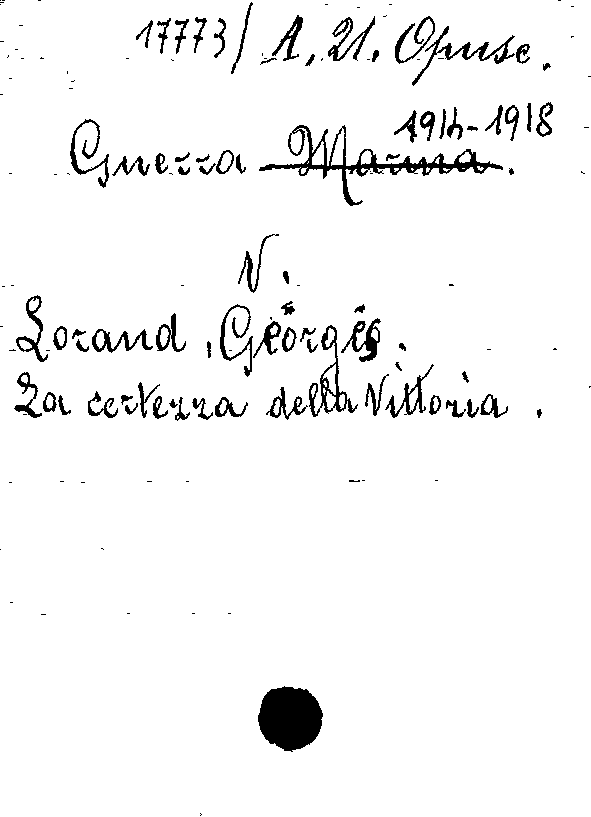 17773/ A, 21. Opusc.
1914-1918
Guerra Marna.
V.
Lorand, Georges.
La certezza della Vittoria.